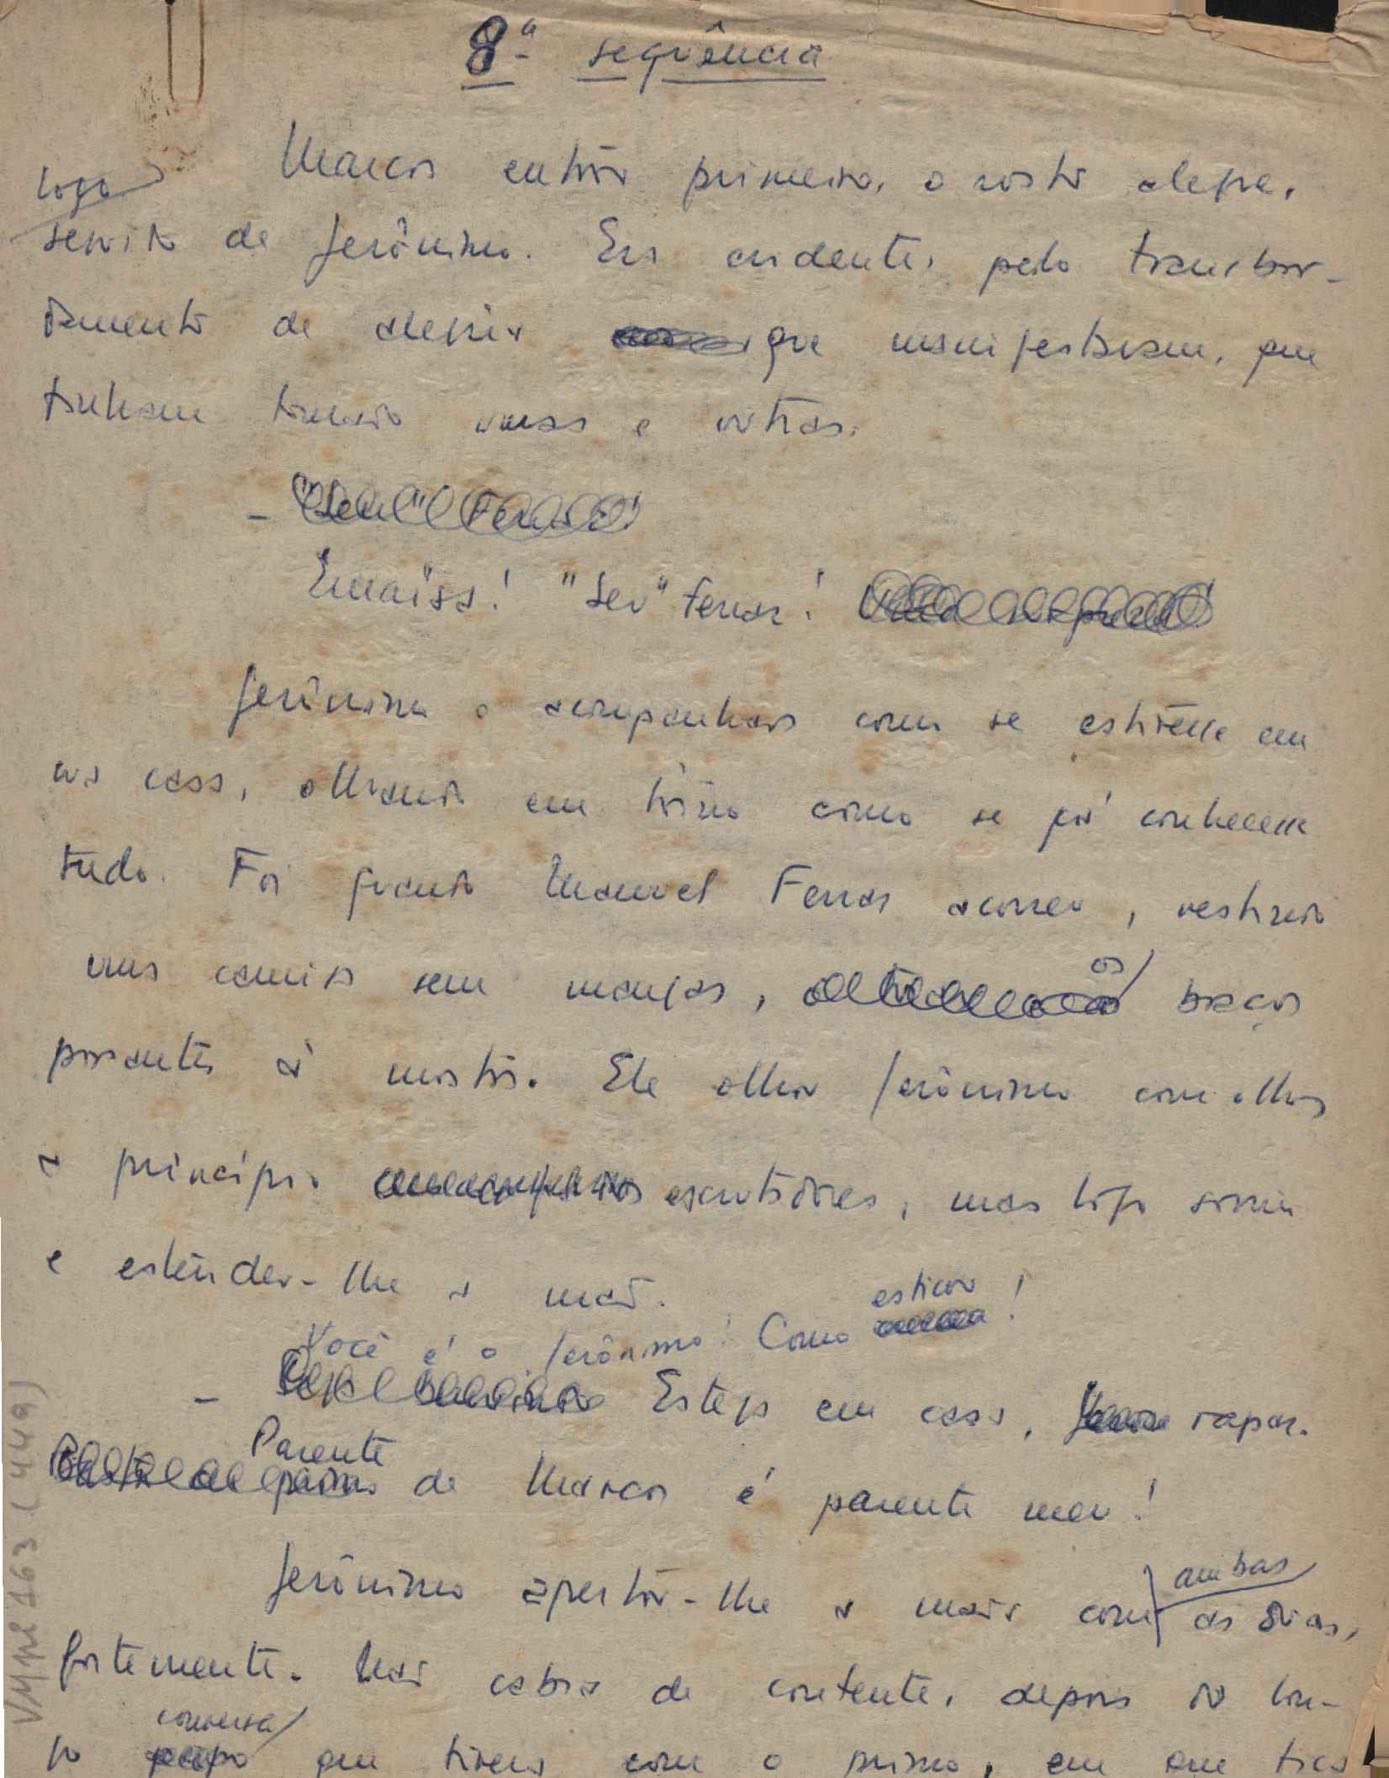 8ª sequência
Marcos entrou primeiro, o rosto alegre,
logo
seguido de Jerônimo. Era evidente, pelo transbor-
damento de alegria que manifestavam, que
tinham tomado umas e outras.
- "Seu" Ferraz!
Emaísa! "Seu" Ferraz!
Jerônimo o acompanhava como se estivesse em
sua casa, olhando em tôrno como se já conhecesse
tudo. Foi quando Manuel Ferraz acorreu, vestindo
uma camisa sem mangas, os braços
possantes à mostra. Ele olhou Jerônimo com olhos
a princípio escrutadores, mas logo sorriu
e estendeu-lhe a mão.
Você é o Jerônimo! Como esticou!
- Esteja em casa, rapaz.
Parente de Marcos é parente meu!
Jerônimo apertou-lhe a mão com ambas as duas,
fortemente. Não cabia de contente, depois da lon-
ga conversa que tivera com o primo, em que
VM pi 163 (449)